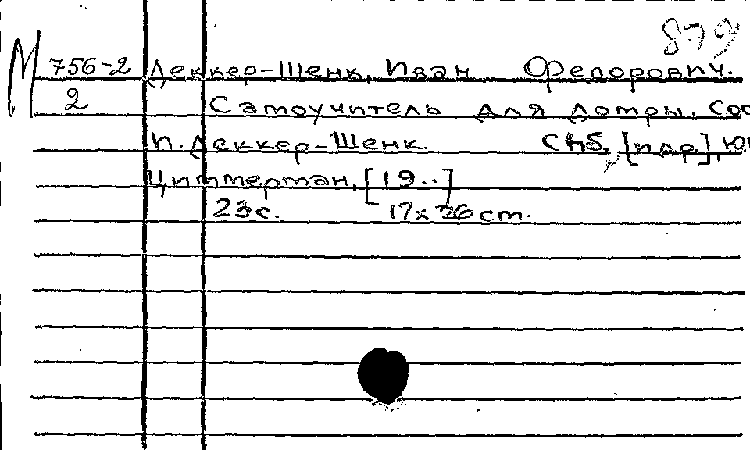 879
М 756-2 Деккер-Шенк, Иван Федорович.
2 Самоучитель для домры. Сос
И. Деккер-Шенк. СПБ. [и др], Юл
Циммерман, [19..]
23с. 17х26 cm.